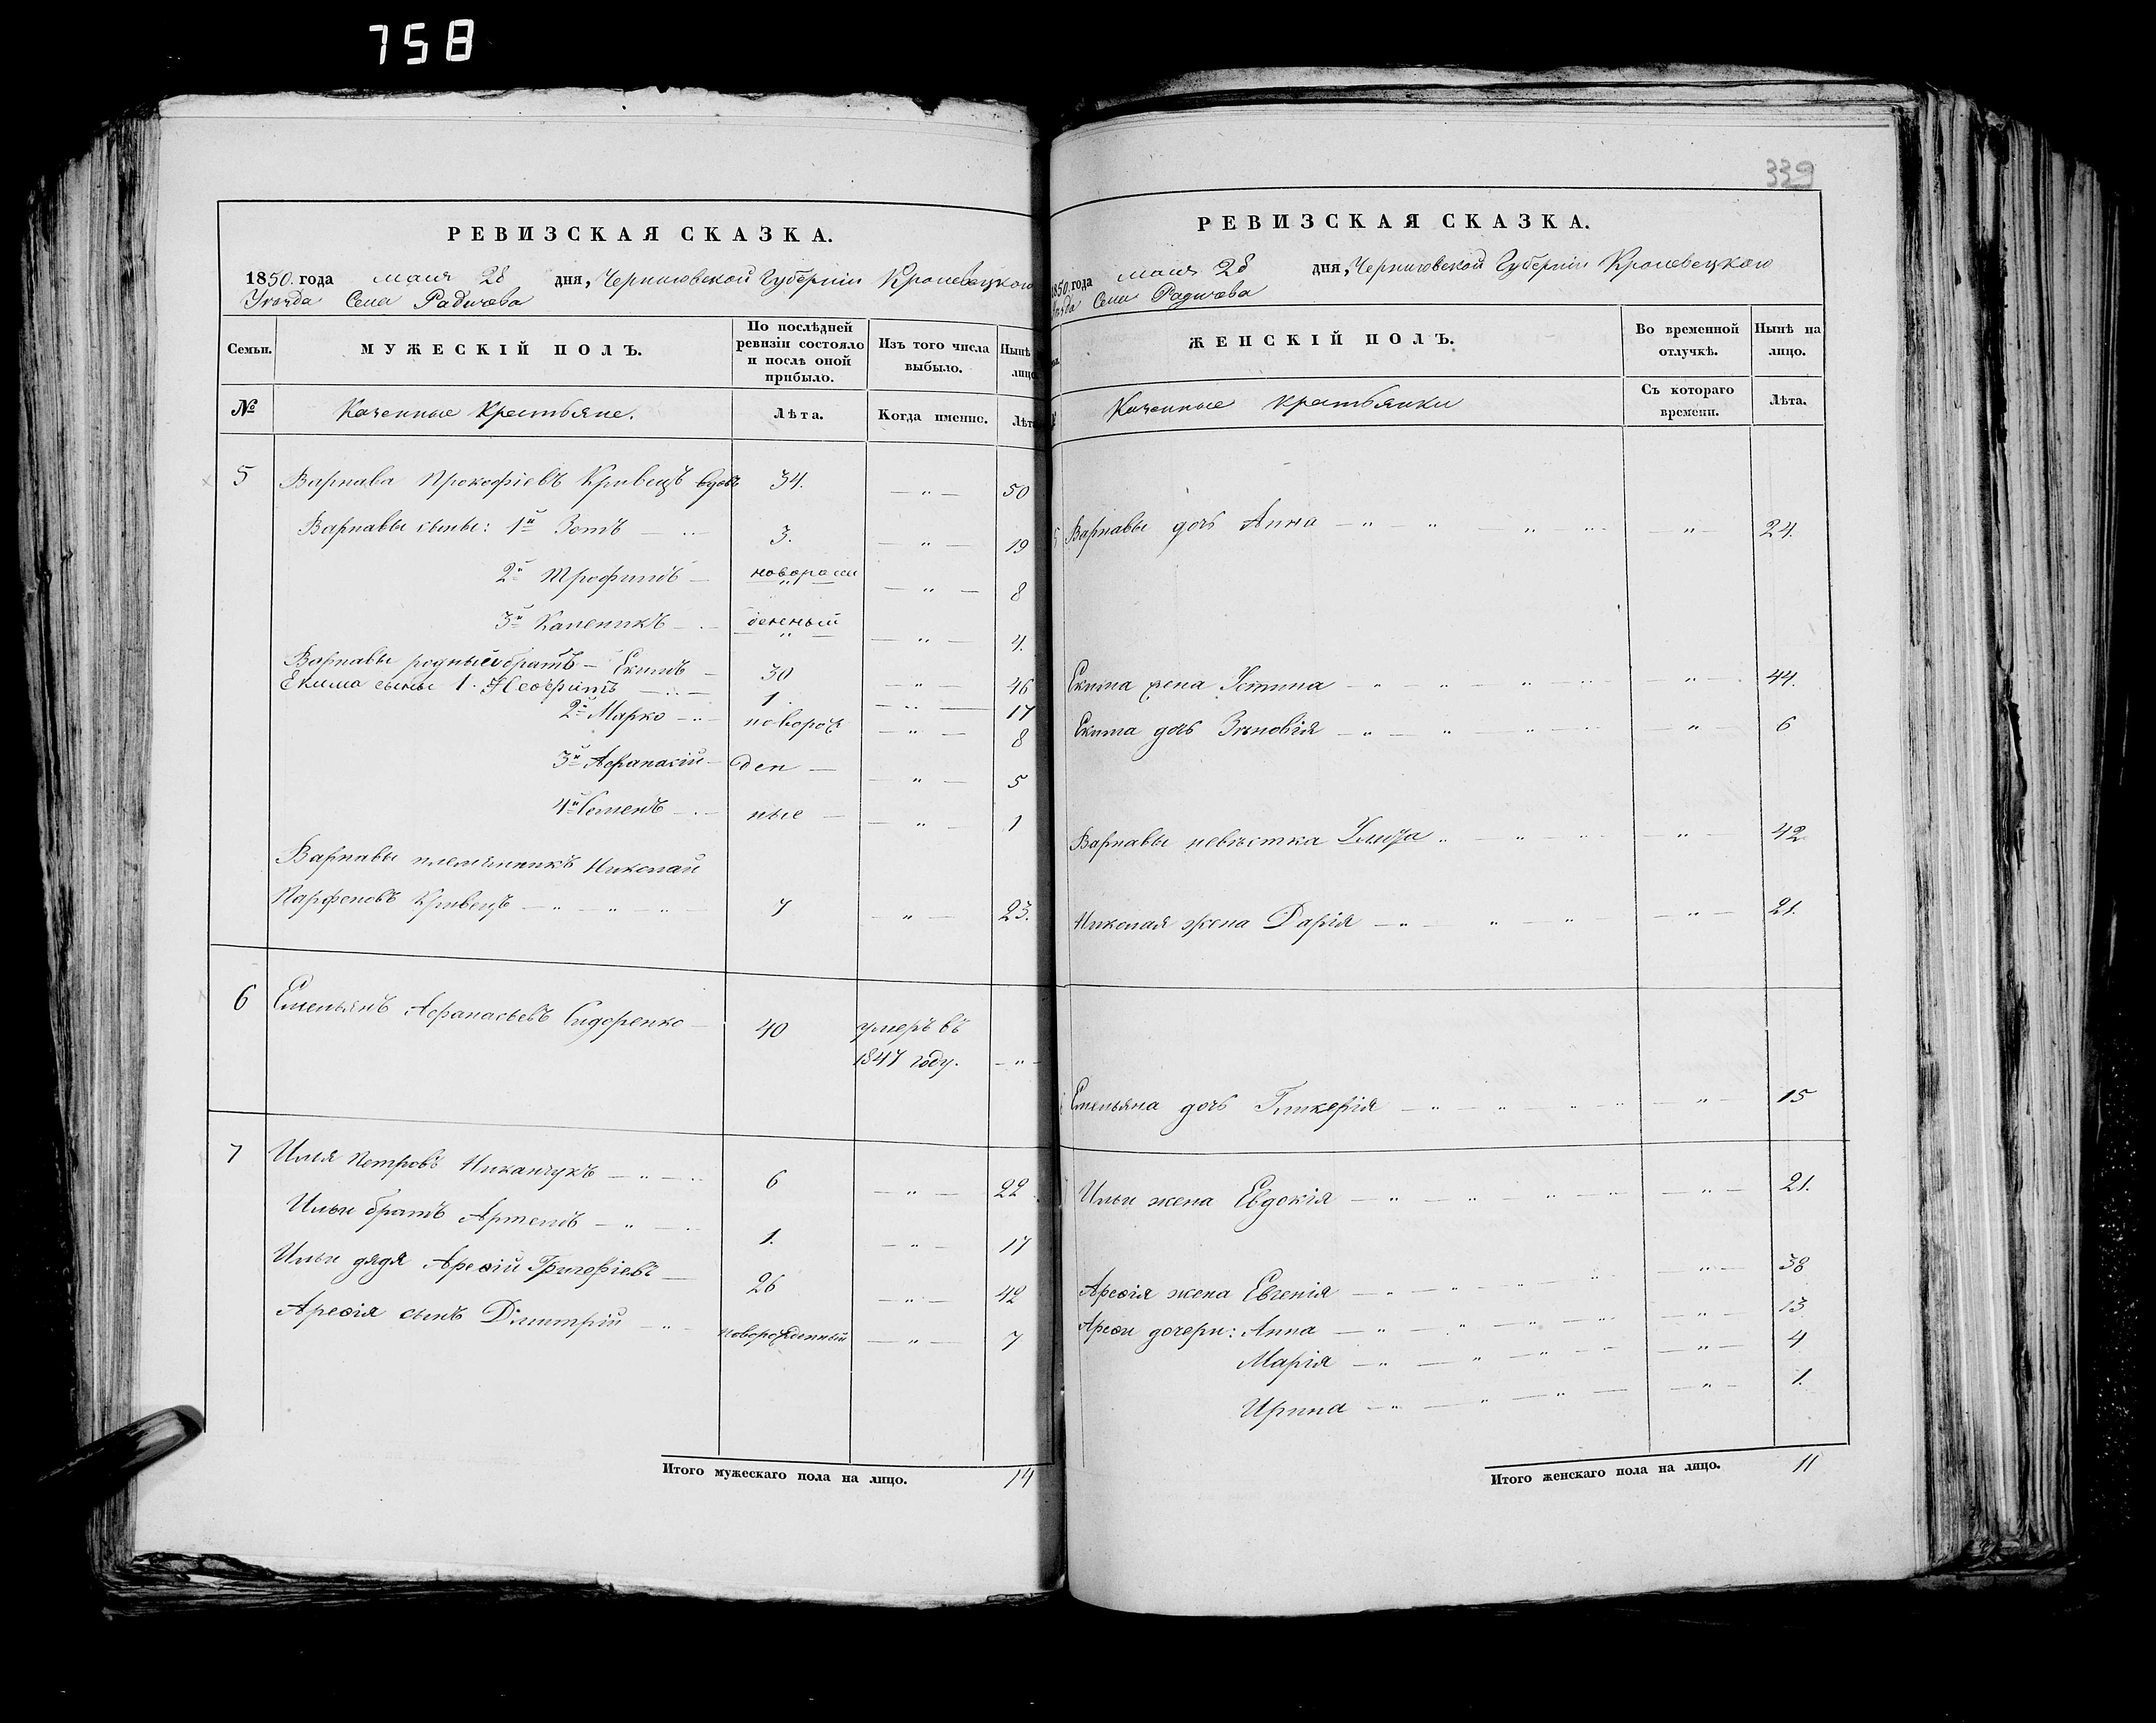 758
339
РЕВИЗСКАЯ СКАЗКА.
1850. года маия 28 дня, Черниговской Губернии Кролевецкого
Уезда Села
Семьи.
МУЖЕСКІЙ ПОЛЪ.
По послѣдней ревизіи состояло и послѣ оной прибыло.
Изъ того числа выбыло.
Нынѣ лицо
№
Казенные Крестьяне.
Лѣта.
Когда именно.
Лѣт
5 Варнава Прокофіевъ Кривецъ вдовъ 34. — " — 50
Варнавы сыны: 1й Зотъ — " — 3. — " — 19
2й Трофимъ — новорож — " — 8
3й Каленикъ — " — денный — " — 4.
Варнавы родный братъ — Екимъ — 30 — " — 46
Екима сыны 1. — " — 1. — " — 17
2й Марко — " — новорож — " — 8
3й Афанасій — ден — — " — 5
4й Семенъ — " — ные — — " — 1
Варнавы племянникъ Николай
Парфеновъ Кривецъ — " — " — " — 7 — " — 23.
6 Емельянъ Афанасьевъ Сидоренко — 40 умеръ въ
1847 году. — " —
7 Илья Петровъ — " — 6 — " — 22
Ильи братъ Артемъ — " — 1. — " — 17
Ильи дядя Григоріевъ — 26 — " — 42
сынъ Димитрій — " — новорожденный — " — 7
Итого мужескаго пола на лицо. 14
РЕВИЗСКАЯ СКАЗКА.
1850. года маия 28 дня, Черниговской Губерніи Кролевецкого
Уезда Села
ЖЕНСКІЙ ПОЛЪ.
Во временной отлучкѣ.
Нынѣ на лицо.
Казенные крестьянки
Съ котораго времени.
Лѣта.
5 Варнавы дочь Анна — " — " — " — " — 24.
Екима жена Устина — " — " — " — " — 44.
Екима дочь Зѣновія — " — " — " — " — 6
Варнавы невѣстка " — " — " — 42
Николая жена Дарія — " — " — " — " — 21.
Емельяна дочь Гликерія — " — " — " — " — 15
Ильи жена Евдокія — " — " — " — " — 21.
жена Евгенія — " — " — " — " — 38
дочери: Анна — " — " — " — " — 13
Марія — " — " — " — " — 4
Ирина — " — " — " — " — 1.
Итого женскаго пола на лицо. 11